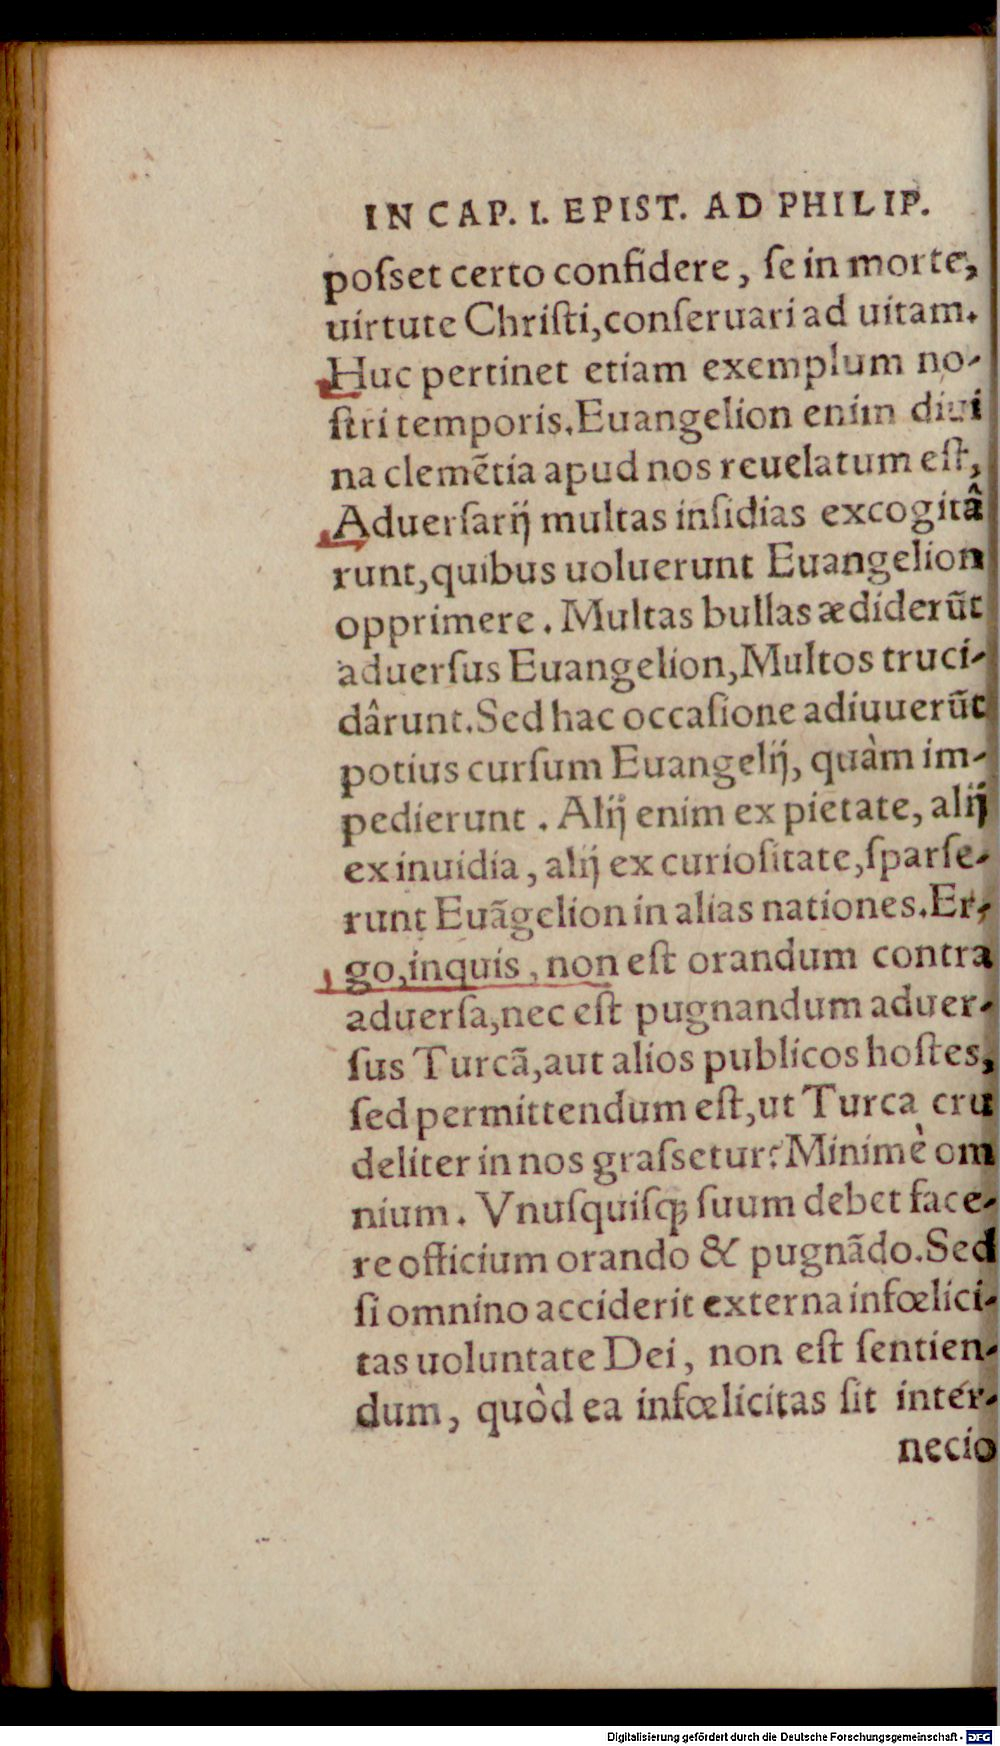 IN CAP. I. EPIST. AD PHILIP.
poſset certo confidere, ſe in morte,
uirtute Chriſti, conſeruari ad uitam.
Huc pertinet etiam exemplum no-
ſtri temporis. Euangelion enim diui
na clemẽtia apud nos reuelatum eſt,
Aduerſarij multas inſidias excogitâ
runt, quibus uoluerunt Euangelion
opprimere. Multas bullas ædiderũt
aduerſus Euangelion, Multos truci-
dârunt. Sed hac occaſione adiuuerũt
potius curſum Euangelij, quàm im-
pedierunt. Alij enim ex pietate, alij
ex inuidia, alij ex curioſitate, ſparſe-
runt Euãgelion in alias nationes. Er-
go, inquis, non eſt orandum contra
aduerſa, nec eſt pugnandum aduer-
ſus Turcã, aut alios publicos hoſtes,
ſed permittendum eſt, ut Turca cru
deliter in nos graſsetur? Minimè om
nium. Vnuſquiſq; ſuum debet face-
re officium orando & pugnãdo. Sed
ſi omnino acciderit externa infœlici-
tas uoluntate Dei, non eſt ſentien-
dum, quòd ea infœlicitas ſit inter-
necio
Digitalisierung gefördert durch die Deutsche Forschungsgemeinschaft - DFG